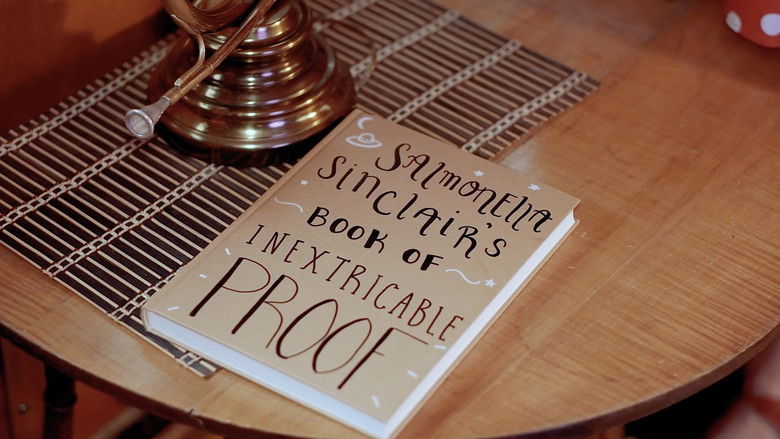 SAlmoNEllA
SiNCLAIR's
BOOK OF
INEXTRICABLE
PROOF